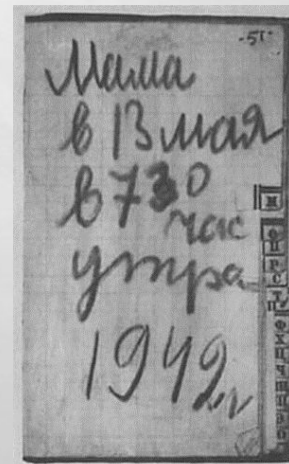 -51-
Мама
в 13 мая
в 730
час
утра
1942 г
М